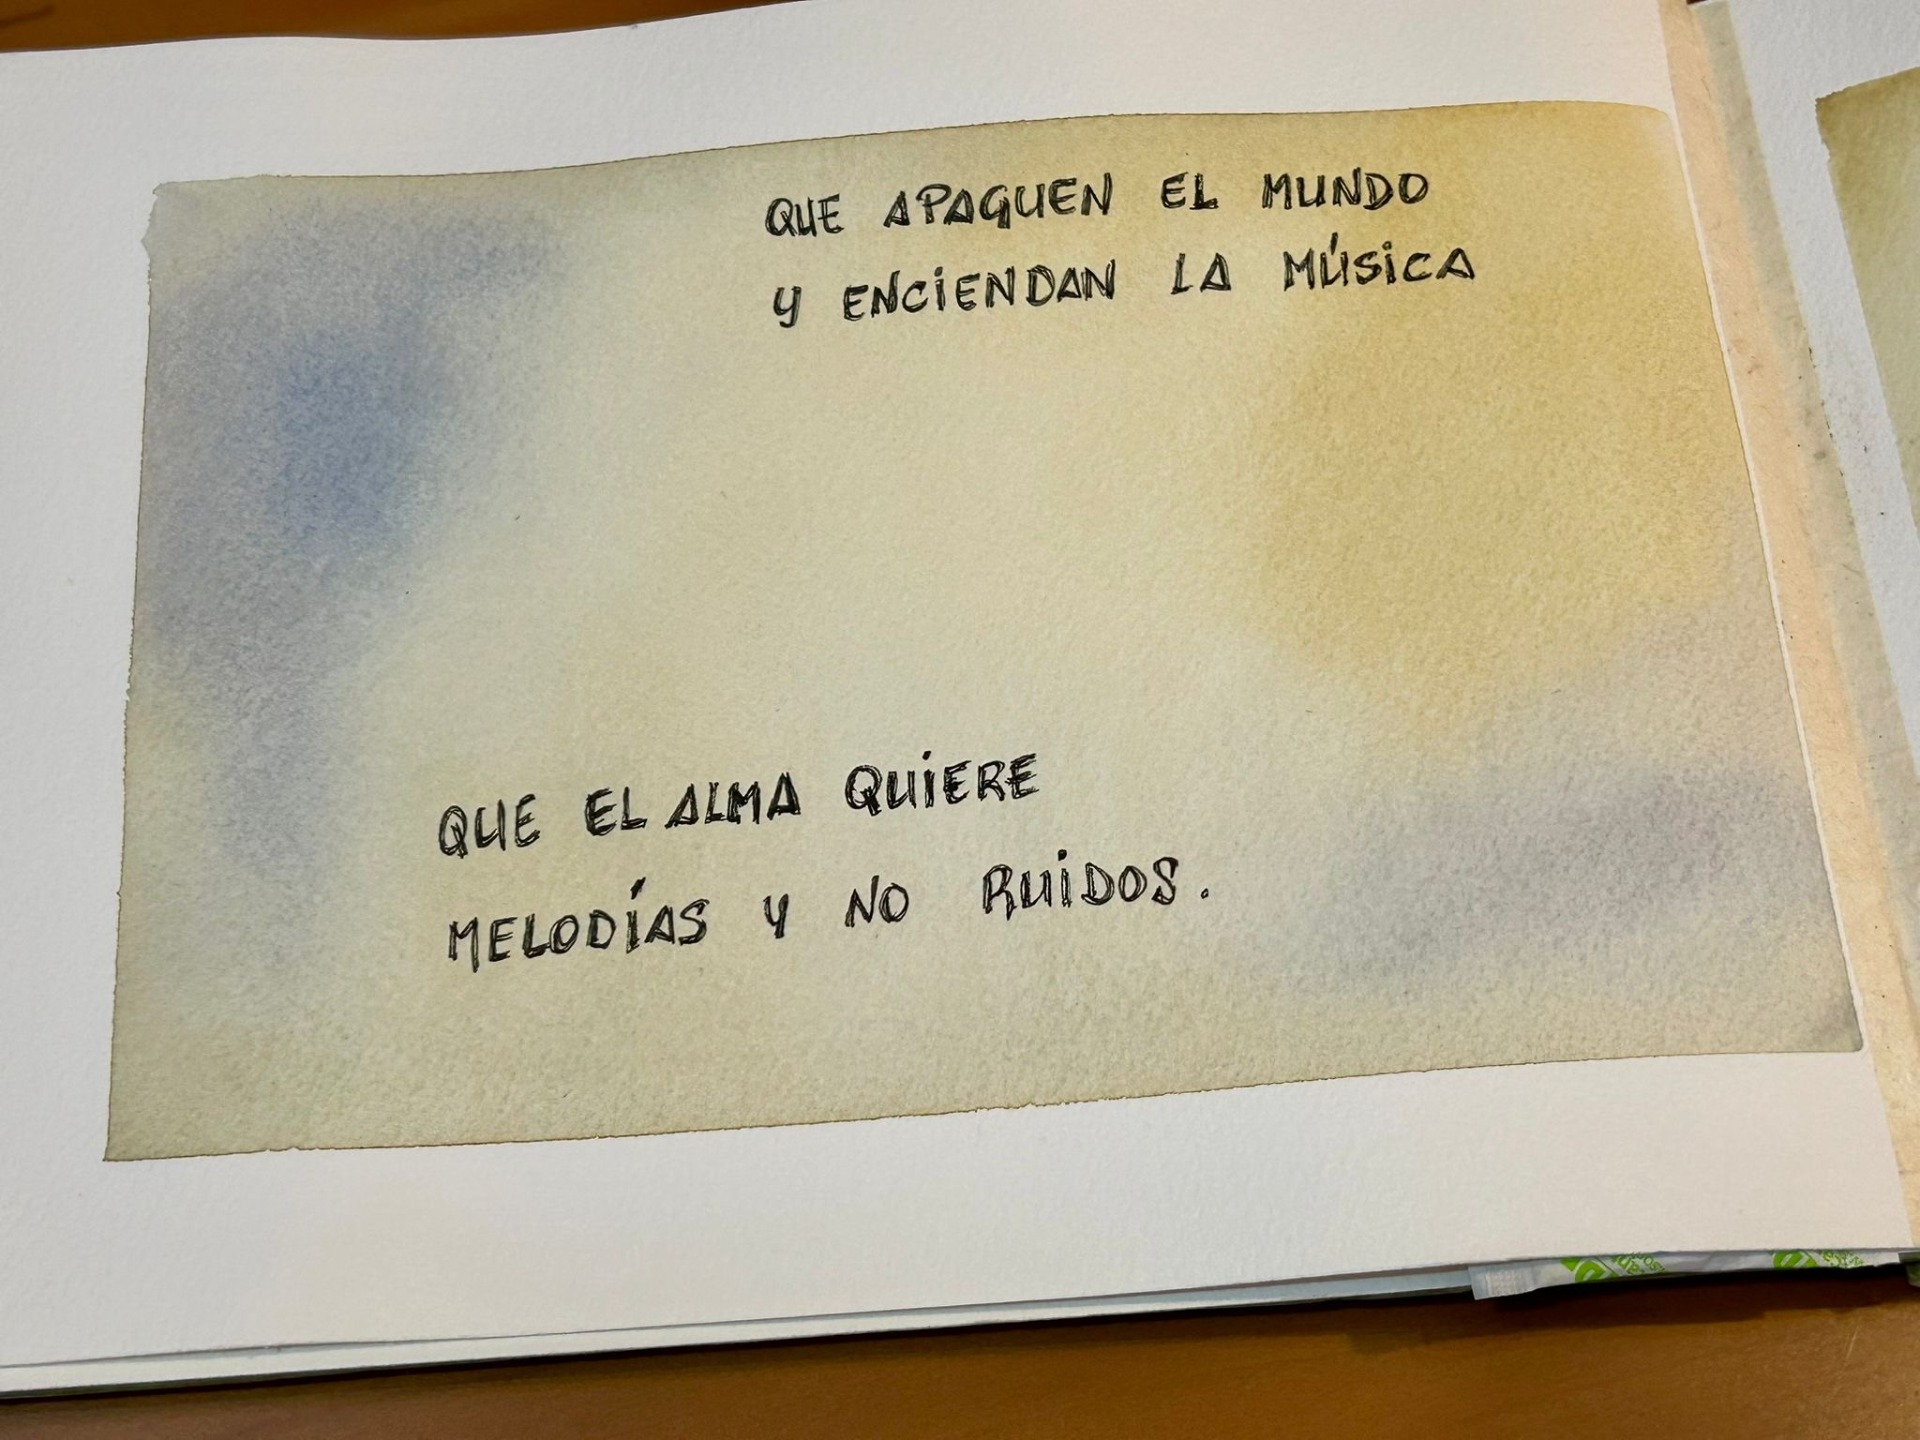 QUE APAGUEN EL MUNDO
Y ENCIENDAN LA MÚSICA
QUE EL ALMA QUIERE
MELODÍAS Y NO RUIDOS.